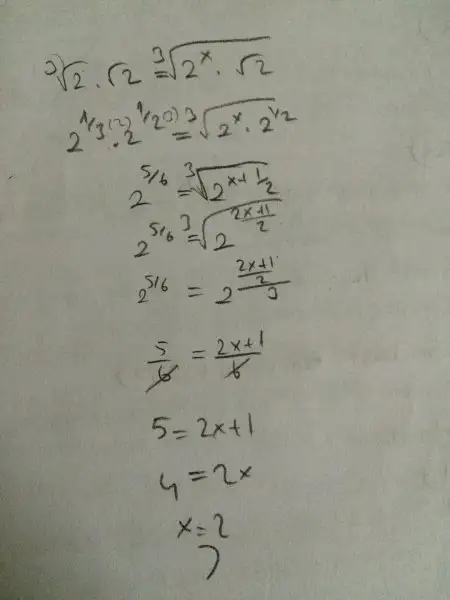 ³√2 · √2 = ³√(2^x · √2)
2^(1/3(2)) · 2^(1/2(3)) = ³√(2^x · 2^(1/2))
2^(5/6) = ³√(2^(x+1/2))
2^(5/6) = ³√(2^((2x+1)/2))
2^(5/6) = 2^(((2x+1)/2)/3)
5/6 = (2x+1)/6
5 = 2x+1
4 = 2x
x = 2